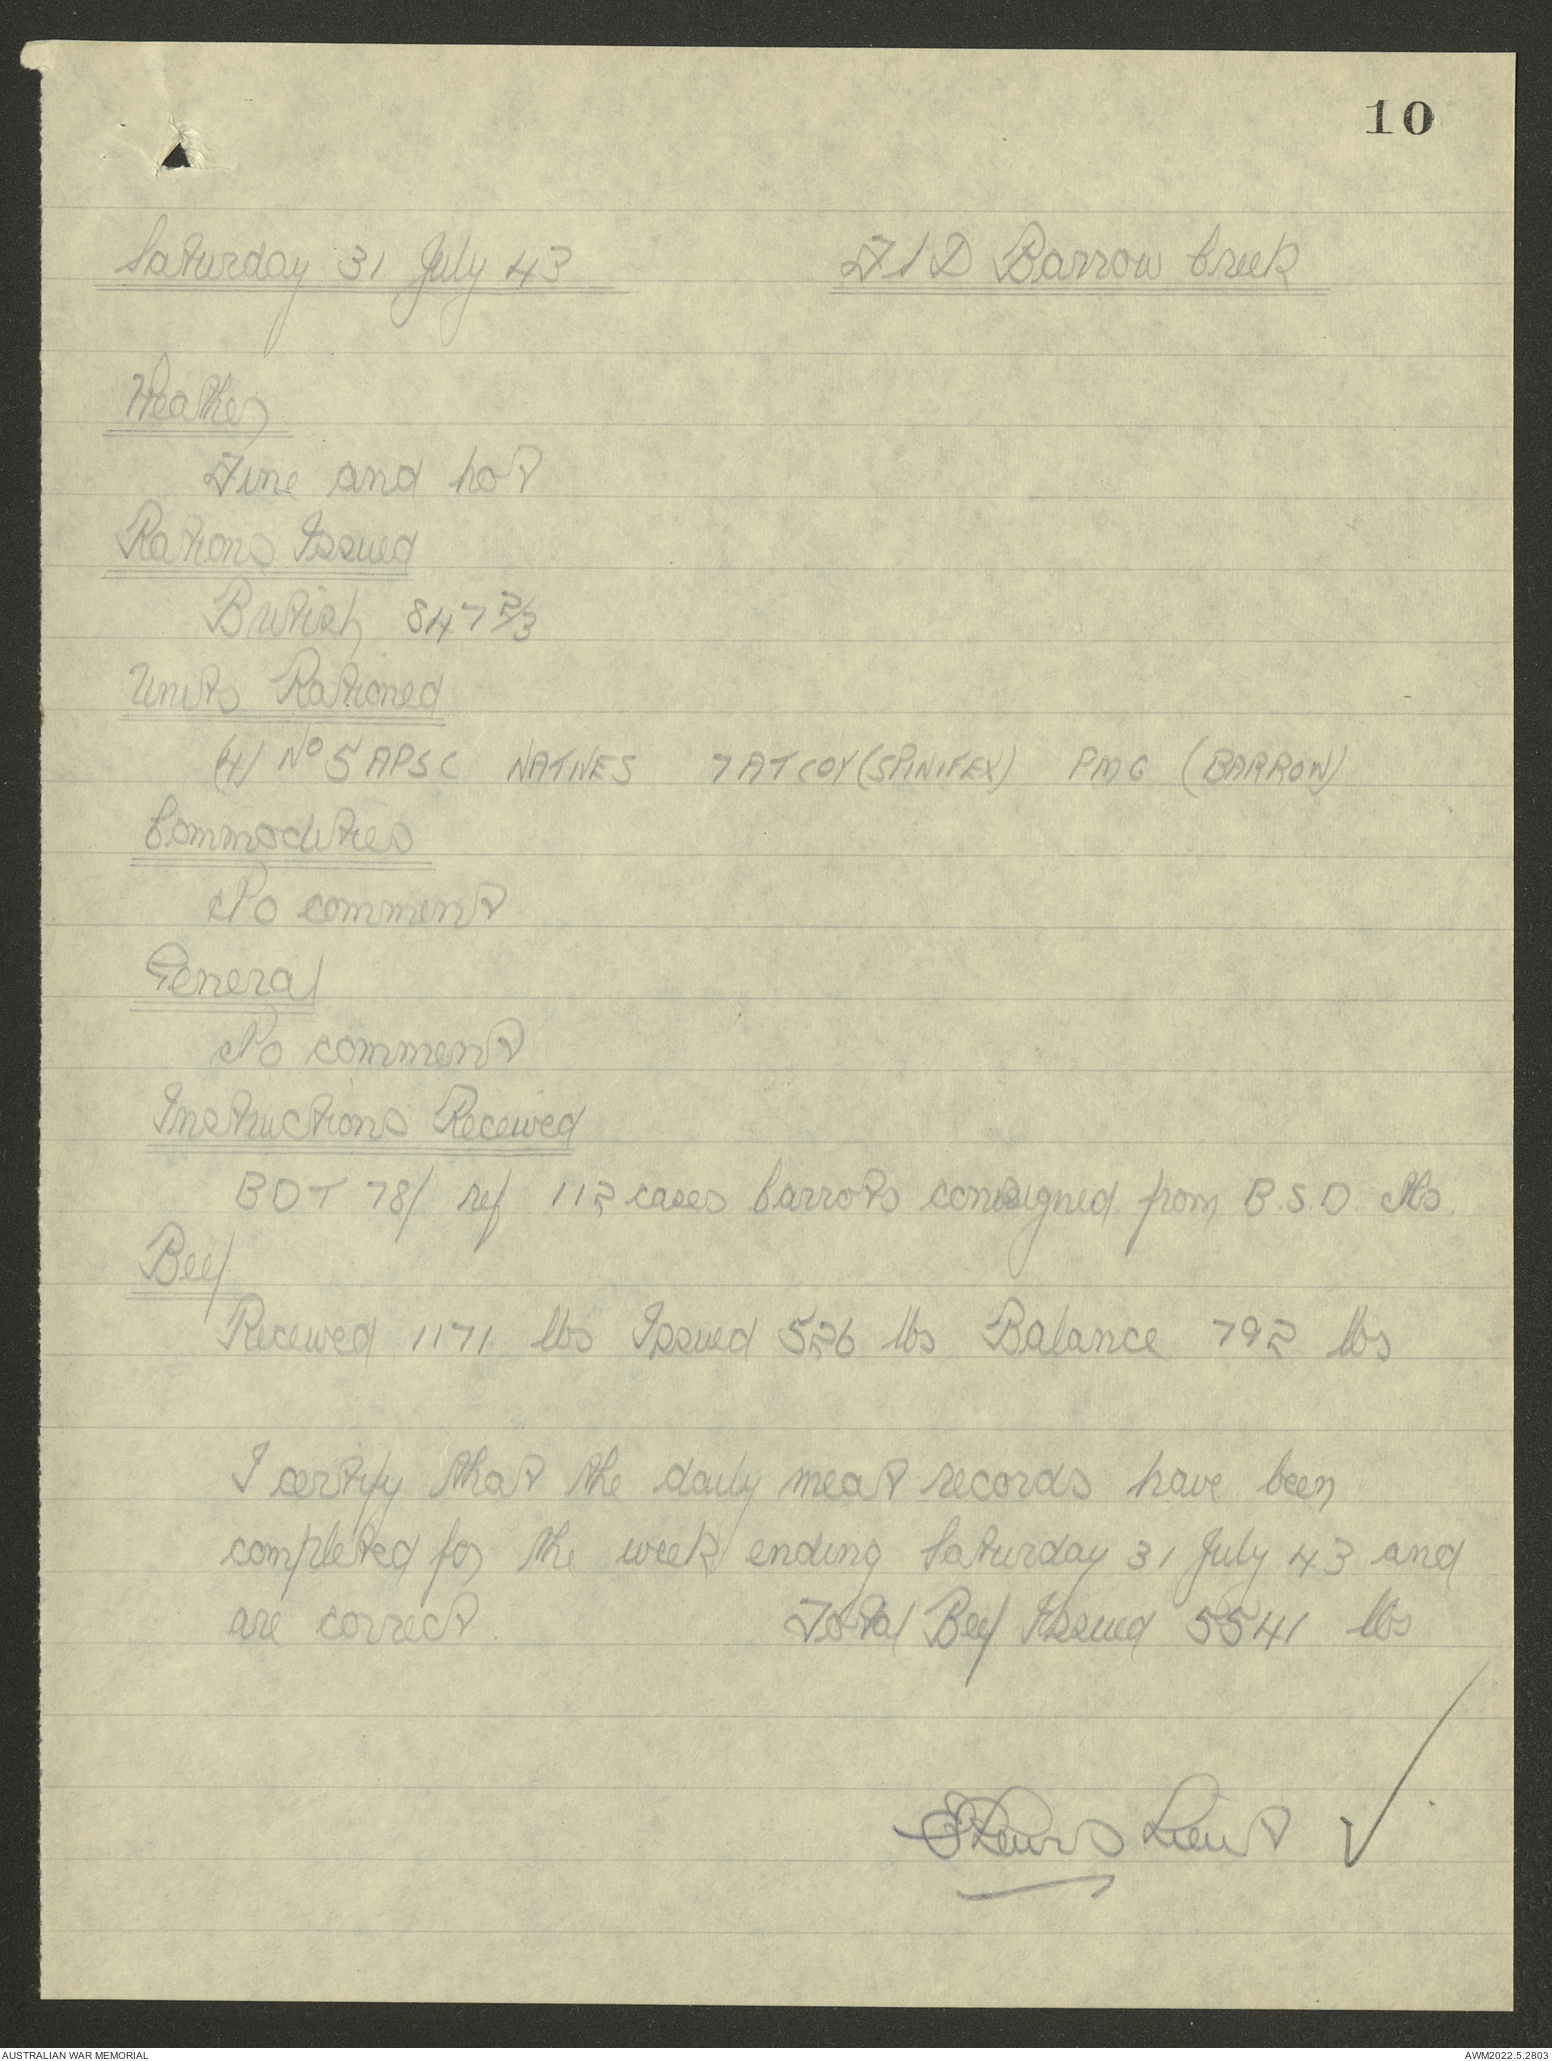 10
Saturday 31 July 43 FID Barrow Creek
Weather
Fine and hot
Rations Issued
British 847 2/3
Units Rationed
(4) No 5 APSC NATIVES 7 AT COY (SPINIFEX) PMG (BARROW)
Commodities
No comment
General
No comment
Instructions Received
BDT 78/ ref 112 cases Carrots consigned from B.S.D.
Beef
Received 1171 lbs Issued 526 lbs Balance 792 lbs
I certify that the daily meat records have been
completed for the week ending Saturday 31 July 43 and
are correct. Total Beef Issued 5541 lbs
Lewis Lieut
AUSTRALIAN WAR MEMORIAL AWM2022.5.2803